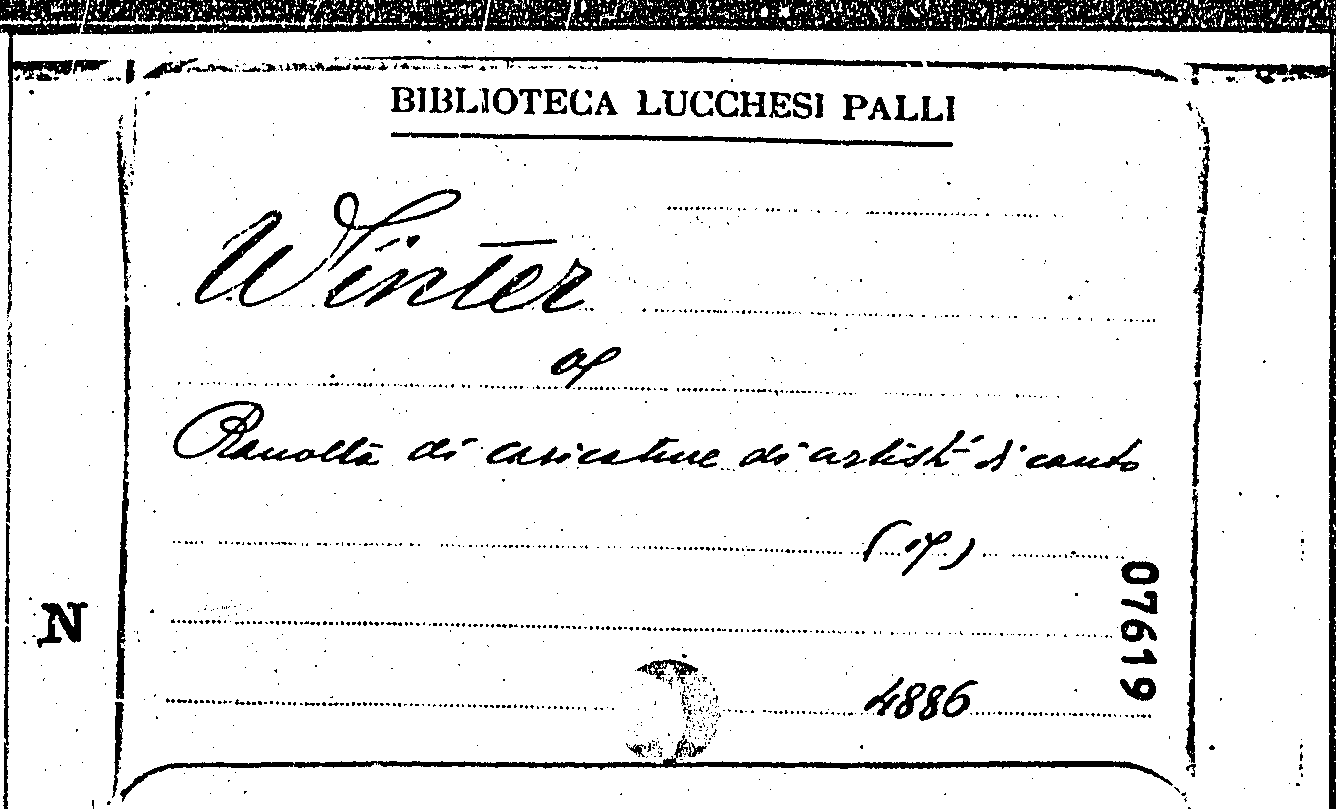 BIBLIOTECA LUCCHESI PALLI
Winter
Raccolta di caricature di artisti di canto
07619
N
4886